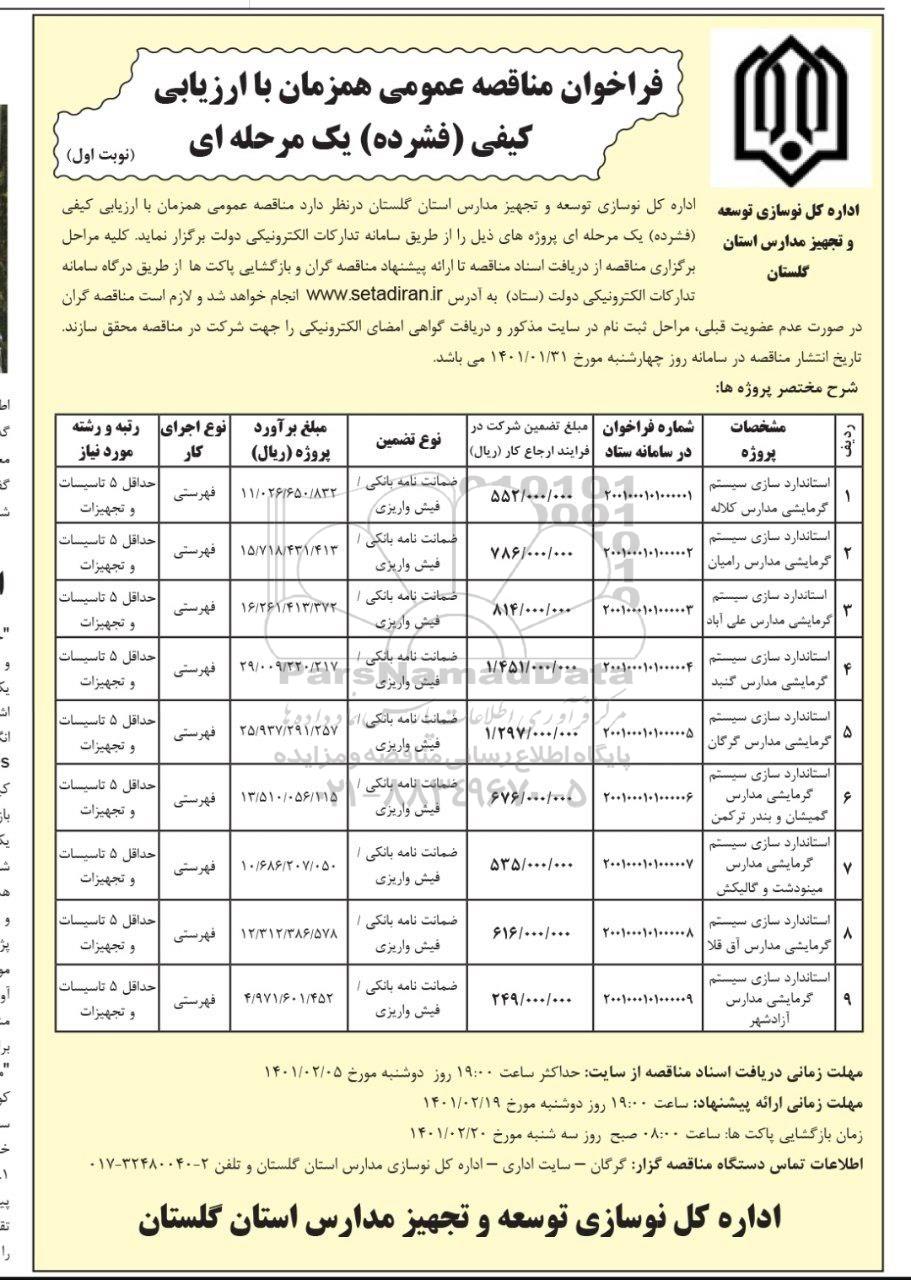 فراخوان مناقصه عمومی همزمان با ارزیابی
کیفی (فشرده) یک مرحله ای
(نوبت اول)
اداره کل نوسازی توسعه
و تجهیز مدارس استان
گلستان
اداره کل نوسازی توسعه و تجهیز مدارس استان گلستان درنظر دارد مناقصه عمومی همزمان با ارزیابی کیفی
(فشرده) یک مرحله ای پروژه های ذیل را از طریق سامانه تدارکات الکترونیکی دولت برگزار نماید. کلیه مراحل
برگزاری مناقصه از دریافت اسناد مناقصه تا ارائه پیشنهاد مناقصه گران و بازگشایی پاکت ها از طریق درگاه سامانه
تدارکات الکترونیکی دولت (ستاد) به آدرس www.setadiran.ir انجام خواهد شد و لازم است مناقصه گران
در صورت عدم عضویت قبلی، مراحل ثبت نام در سایت مذکور و دریافت گواهی امضای الکترونیکی را جهت شرکت در مناقصه محقق سازند.
تاریخ انتشار مناقصه در سامانه روز چهارشنبه مورخ ۱۴۰۱/۰۱/۳۱ می باشد.
شرح مختصر پروژه ها:
ردیف
مشخصات
پروژه
شماره فراخوان
در سامانه ستاد
مبلغ تضمین شرکت در
فرایند ارجاع کار (ریال)
نوع تضمین
مبلغ برآورد
پروژه (ریال)
نوع اجرای
کار
رتبه و رشته
مورد نیاز
۱
استاندارد سازی سیستم
گرمایشی مدارس کلاله
۲۰۰۱۰۰۰۱۰۱۰۰۰۰۰۱
۵۵۲/۰۰۰/۰۰۰
ضمانت نامه بانکی /
فیش واریزی
۱۱/۰۲۶/۶۵۰/۸۳۲
فهرستی
حداقل ۵ تاسیسات
و تجهیزات
۲
استاندارد سازی سیستم
گرمایشی مدارس رامیان
۲۰۰۱۰۰۰۱۰۱۰۰۰۰۰۲
۷۸۶/۰۰۰/۰۰۰
ضمانت نامه بانکی /
فیش واریزی
۱۵/۷۱۸/۴۳۱/۴۱۳
فهرستی
حداقل ۵ تاسیسات
و تجهیزات
۳
استاندارد سازی سیستم
گرمایشی مدارس علی آباد
۲۰۰۱۰۰۰۱۰۱۰۰۰۰۰۳
۸۱۴/۰۰۰/۰۰۰
ضمانت نامه بانکی /
فیش واریزی
۱۶/۲۶۱/۴۱۳/۳۷۲
فهرستی
حداقل ۵ تاسیسات
و تجهیزات
۴
استاندارد سازی سیستم
گرمایشی مدارس گنبد
۲۰۰۱۰۰۰۱۰۱۰۰۰۰۰۴
۱/۴۵۱/۰۰۰/۰۰۰
ضمانت نامه بانکی /
فیش واریزی
۲۹/۰۰۹/۲۲۰/۲۱۷
فهرستی
حداقل ۵ تاسیسات
و تجهیزات
۵
استاندارد سازی سیستم
گرمایشی مدارس گرگان
۲۰۰۱۰۰۰۱۰۱۰۰۰۰۰۵
۱/۲۹۷/۰۰۰/۰۰۰
ضمانت نامه بانکی /
فیش واریزی
۲۵/۹۳۷/۲۹۱/۲۵۷
فهرستی
حداقل ۵ تاسیسات
و تجهیزات
۶
استاندارد سازی سیستم
گرمایشی مدارس
گمیشان و بندر ترکمن
۲۰۰۱۰۰۰۱۰۱۰۰۰۰۰۶
۶۷۶/۰۰۰/۰۰۰
ضمانت نامه بانکی /
فیش واریزی
۱۳/۵۱۰/۰۵۶/۱۱۵
فهرستی
حداقل ۵ تاسیسات
و تجهیزات
۷
استاندارد سازی سیستم
گرمایشی مدارس
مینودشت و گالیکش
۲۰۰۱۰۰۰۱۰۱۰۰۰۰۰۷
۵۳۵/۰۰۰/۰۰۰
ضمانت نامه بانکی /
فیش واریزی
۱۰/۶۸۶/۲۰۷/۰۵۰
فهرستی
حداقل ۵ تاسیسات
و تجهیزات
۸
استاندارد سازی سیستم
گرمایشی مدارس آق قلا
۲۰۰۱۰۰۰۱۰۱۰۰۰۰۰۸
۶۱۶/۰۰۰/۰۰۰
ضمانت نامه بانکی /
فیش واریزی
۱۲/۳۱۲/۳۸۶/۵۷۸
فهرستی
حداقل ۵ تاسیسات
و تجهیزات
۹
استاندارد سازی سیستم
گرمایشی مدارس
آزادشهر
۲۰۰۱۰۰۰۱۰۱۰۰۰۰۰۹
۲۴۹/۰۰۰/۰۰۰
ضمانت نامه بانکی /
فیش واریزی
۴/۹۷۱/۶۰۱/۴۵۲
فهرستی
حداقل ۵ تاسیسات
و تجهیزات
ParsNamadData
پایگاه اطلاع رسانی مناقصه و مزایده
۰۲۱-۸۸۳۴۹۶۷۰-۵
مهلت زمانی دریافت اسناد مناقصه از سایت: حداکثر ساعت ۱۹:۰۰ روز دوشنبه مورخ ۱۴۰۱/۰۲/۰۵
مهلت زمانی ارائه پیشنهاد: ساعت ۱۹:۰۰ روز دوشنبه مورخ ۱۴۰۱/۰۲/۱۹
زمان بازگشایی پاکت ها: ساعت ۰۸:۰۰ صبح روز سه شنبه مورخ ۱۴۰۱/۰۲/۲۰
اطلاعات تماس دستگاه مناقصه گزار: گرگان – سایت اداری – اداره کل نوسازی مدارس استان گلستان و تلفن ۲-۳۲۴۸۰۰۴۰-۰۱۷
اداره کل نوسازی توسعه و تجهیز مدارس استان گلستان